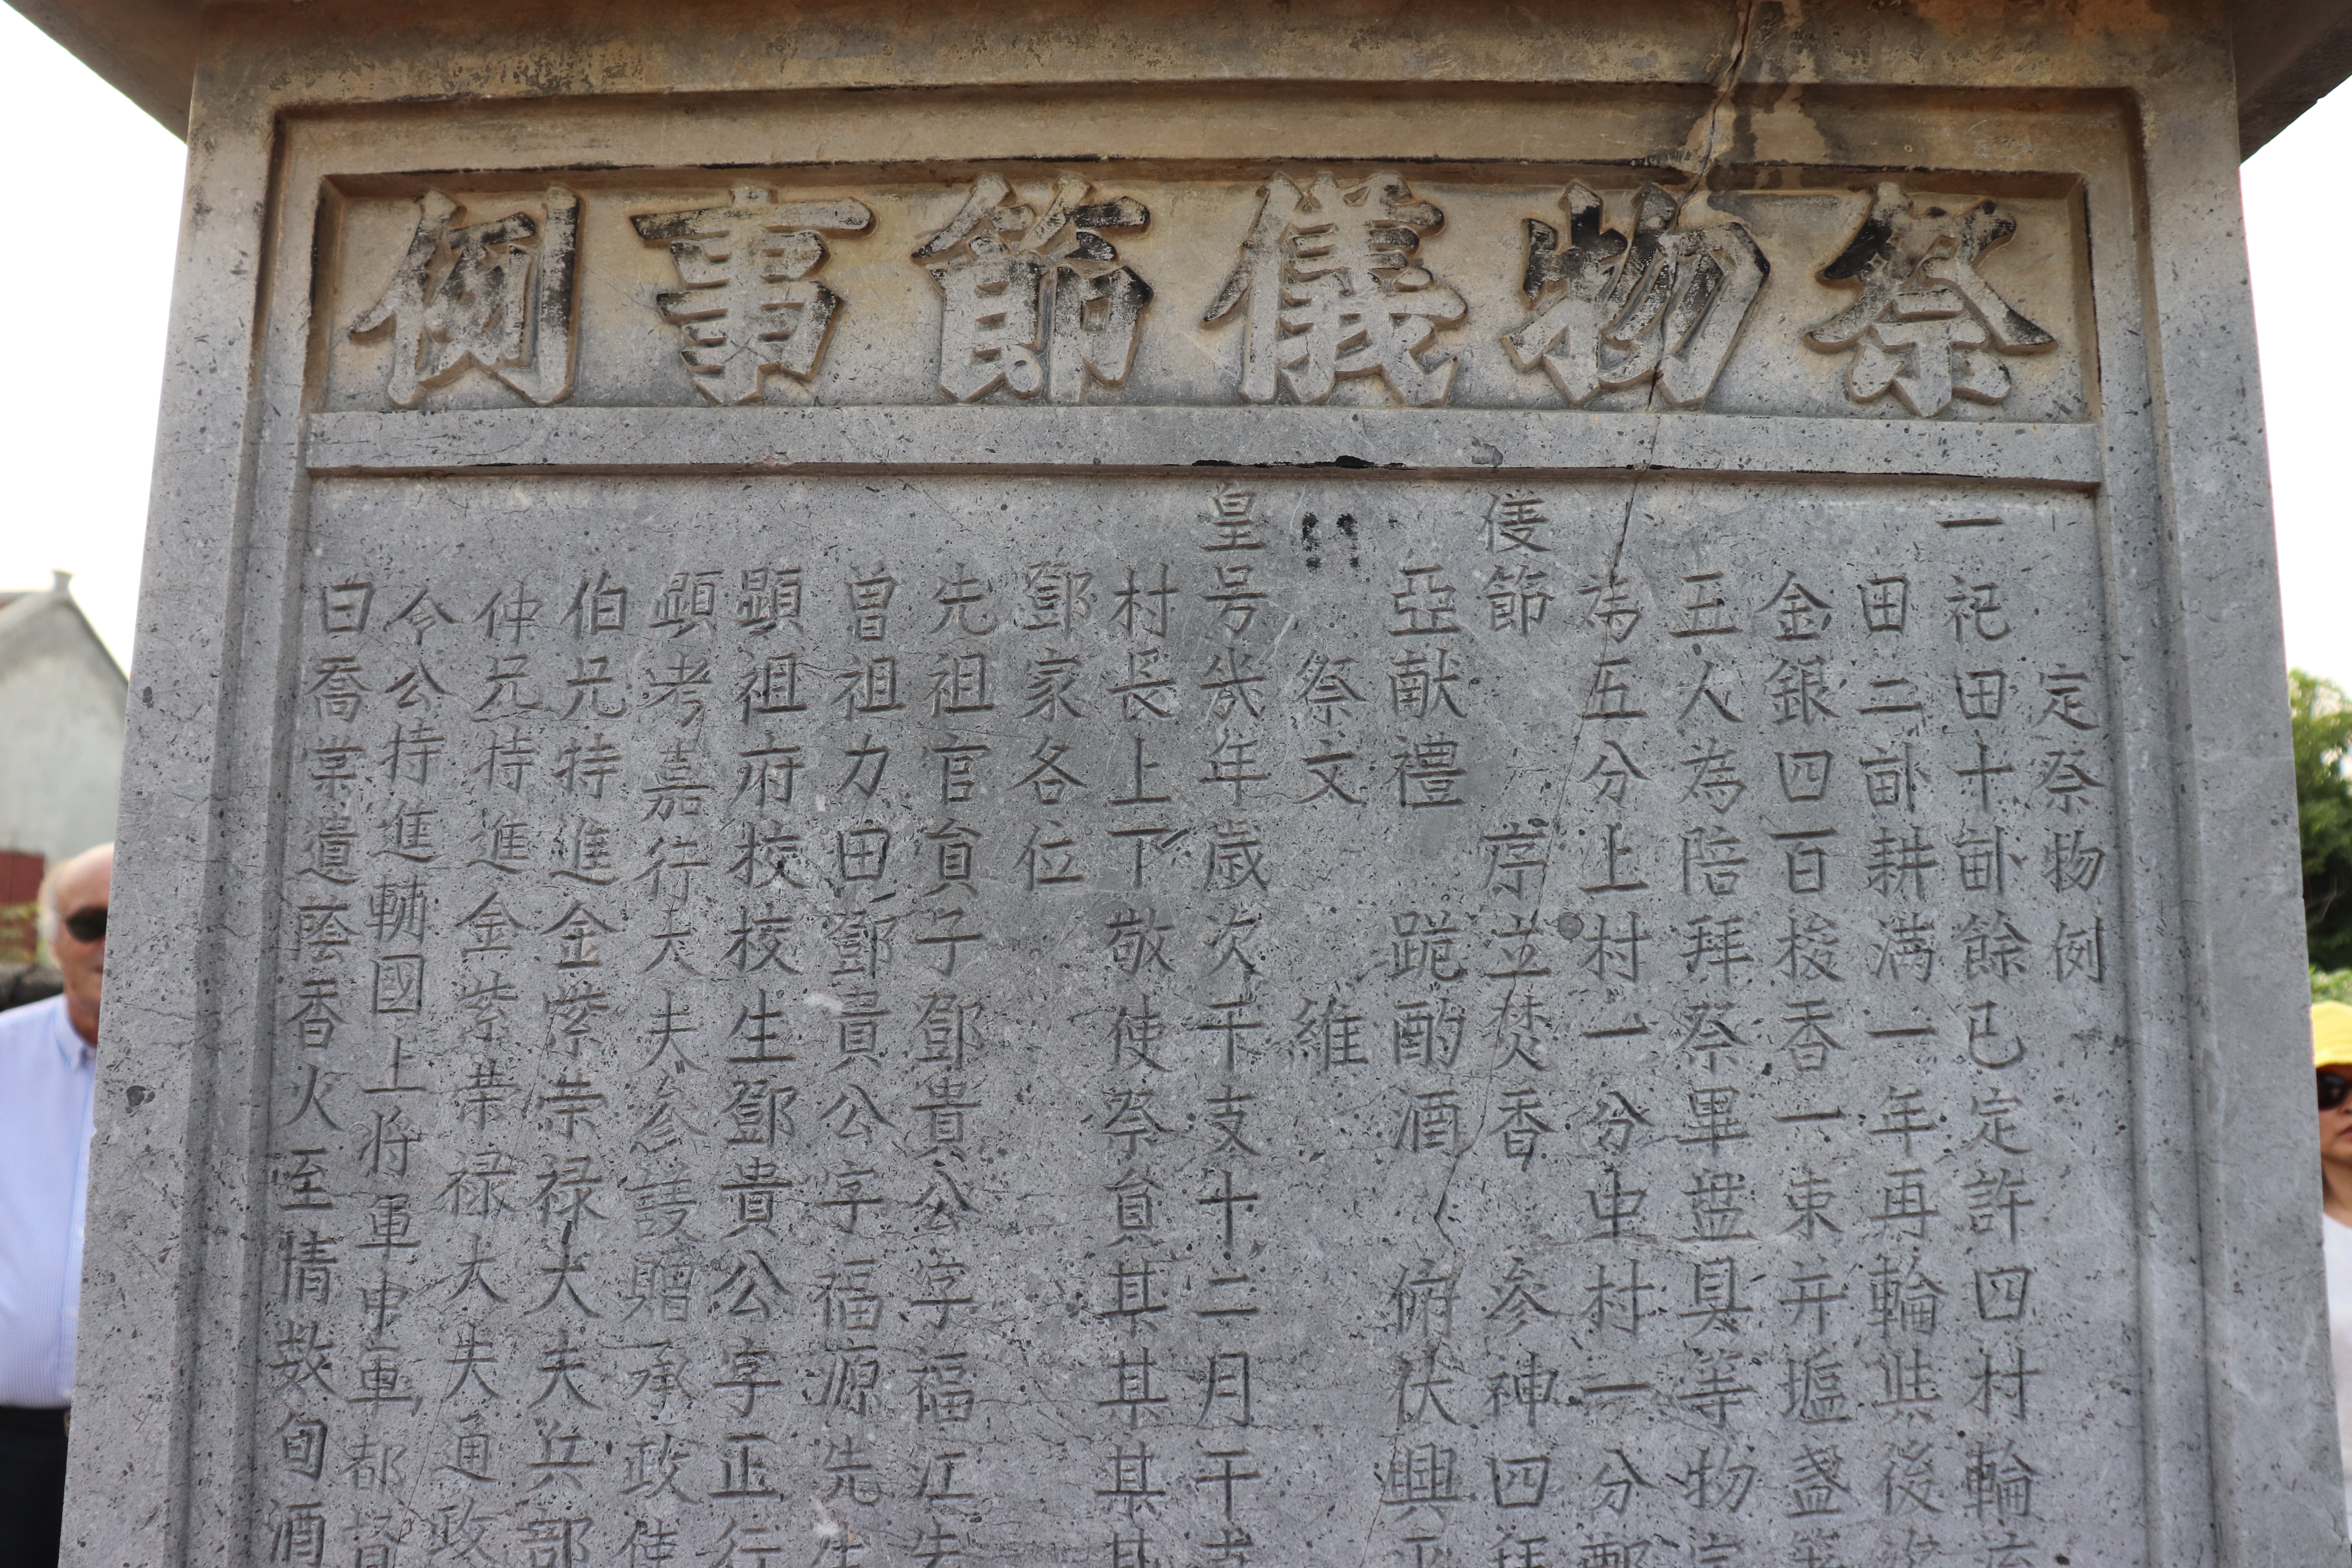 祭物儀節事例
定祭物例
一祀田十畝餘已定許四村輪
田二畝耕満一年再輪其後
金銀四百梭香一束并塩盞
五人為陪拜祭畢盤具等物
為五分上村一分中村一分
儀節 序立焚香 参神四拜
亞献禮 跪酌酒 俯伏興平
祭文 維
皇号幾年歳次干支十二月干支
村長上下敬使祭員某某某某
鄧家各位
先祖官員子鄧貴公字福江先
曽祖力田鄧貴公字福源先生
顕祖府校校生鄧貴公字正行
顕考嘉行大夫参議贈承政使
伯兄特進金紫荣禄大夫兵部
仲兄特進金紫荣禄大夫通政
令公特進輔國上将軍中軍都督
曰喬棠遺蔭香火至情数旬酒